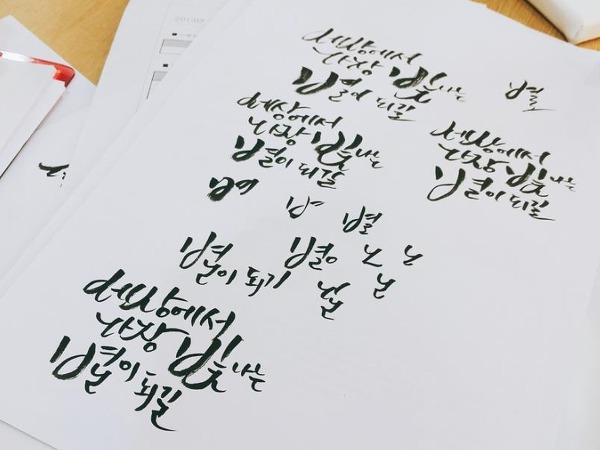 세상에서
가장 빛나는
별이 되길
별
세상에서
가장 빛나는
별이 되길
세상에서
가장 빛나는
별이 되길
별
별이 되기
세상에서
가장 빛나는
별이 되길